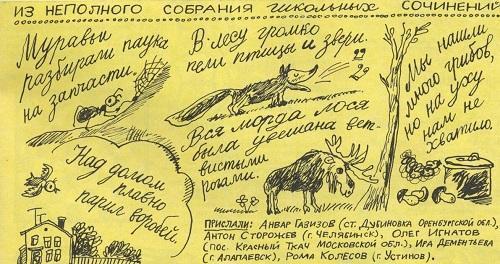 ИЗ НЕПОЛНОГО СОБРАНИЯ ШКОЛЬНЫХ СОЧИНЕНИЙ
Муравьи
разбирали паука
на запчасти.
В лесу громко
пели птицы и звери.
Мы нашли
много грибов,
но на уху
нам не
хватило.
Вся морда лося
была увешана вет-
вистыми
рогами.
Над домом
плавно
парил воробей.
ПРИСЛАЛИ: АНВАР ГАЗИЗОВ (СТ. ДУБИНОВКА ОРЕНБУРГСКОЙ ОБЛ.),
АНТОН СТОРОЖЕВ (Г. ЧЕЛЯБИНСК), ОЛЕГ ИГНАТОВ
(ПОС. КРАСНЫЙ ТКАЧ МОСКОВСКОЙ ОБЛ.), ИРА ДЕМЕНТЬЕВА
(Г. АЛАПАЕВСК), РОМА КОЛЕСОВ (Г. УСТИНОВ).